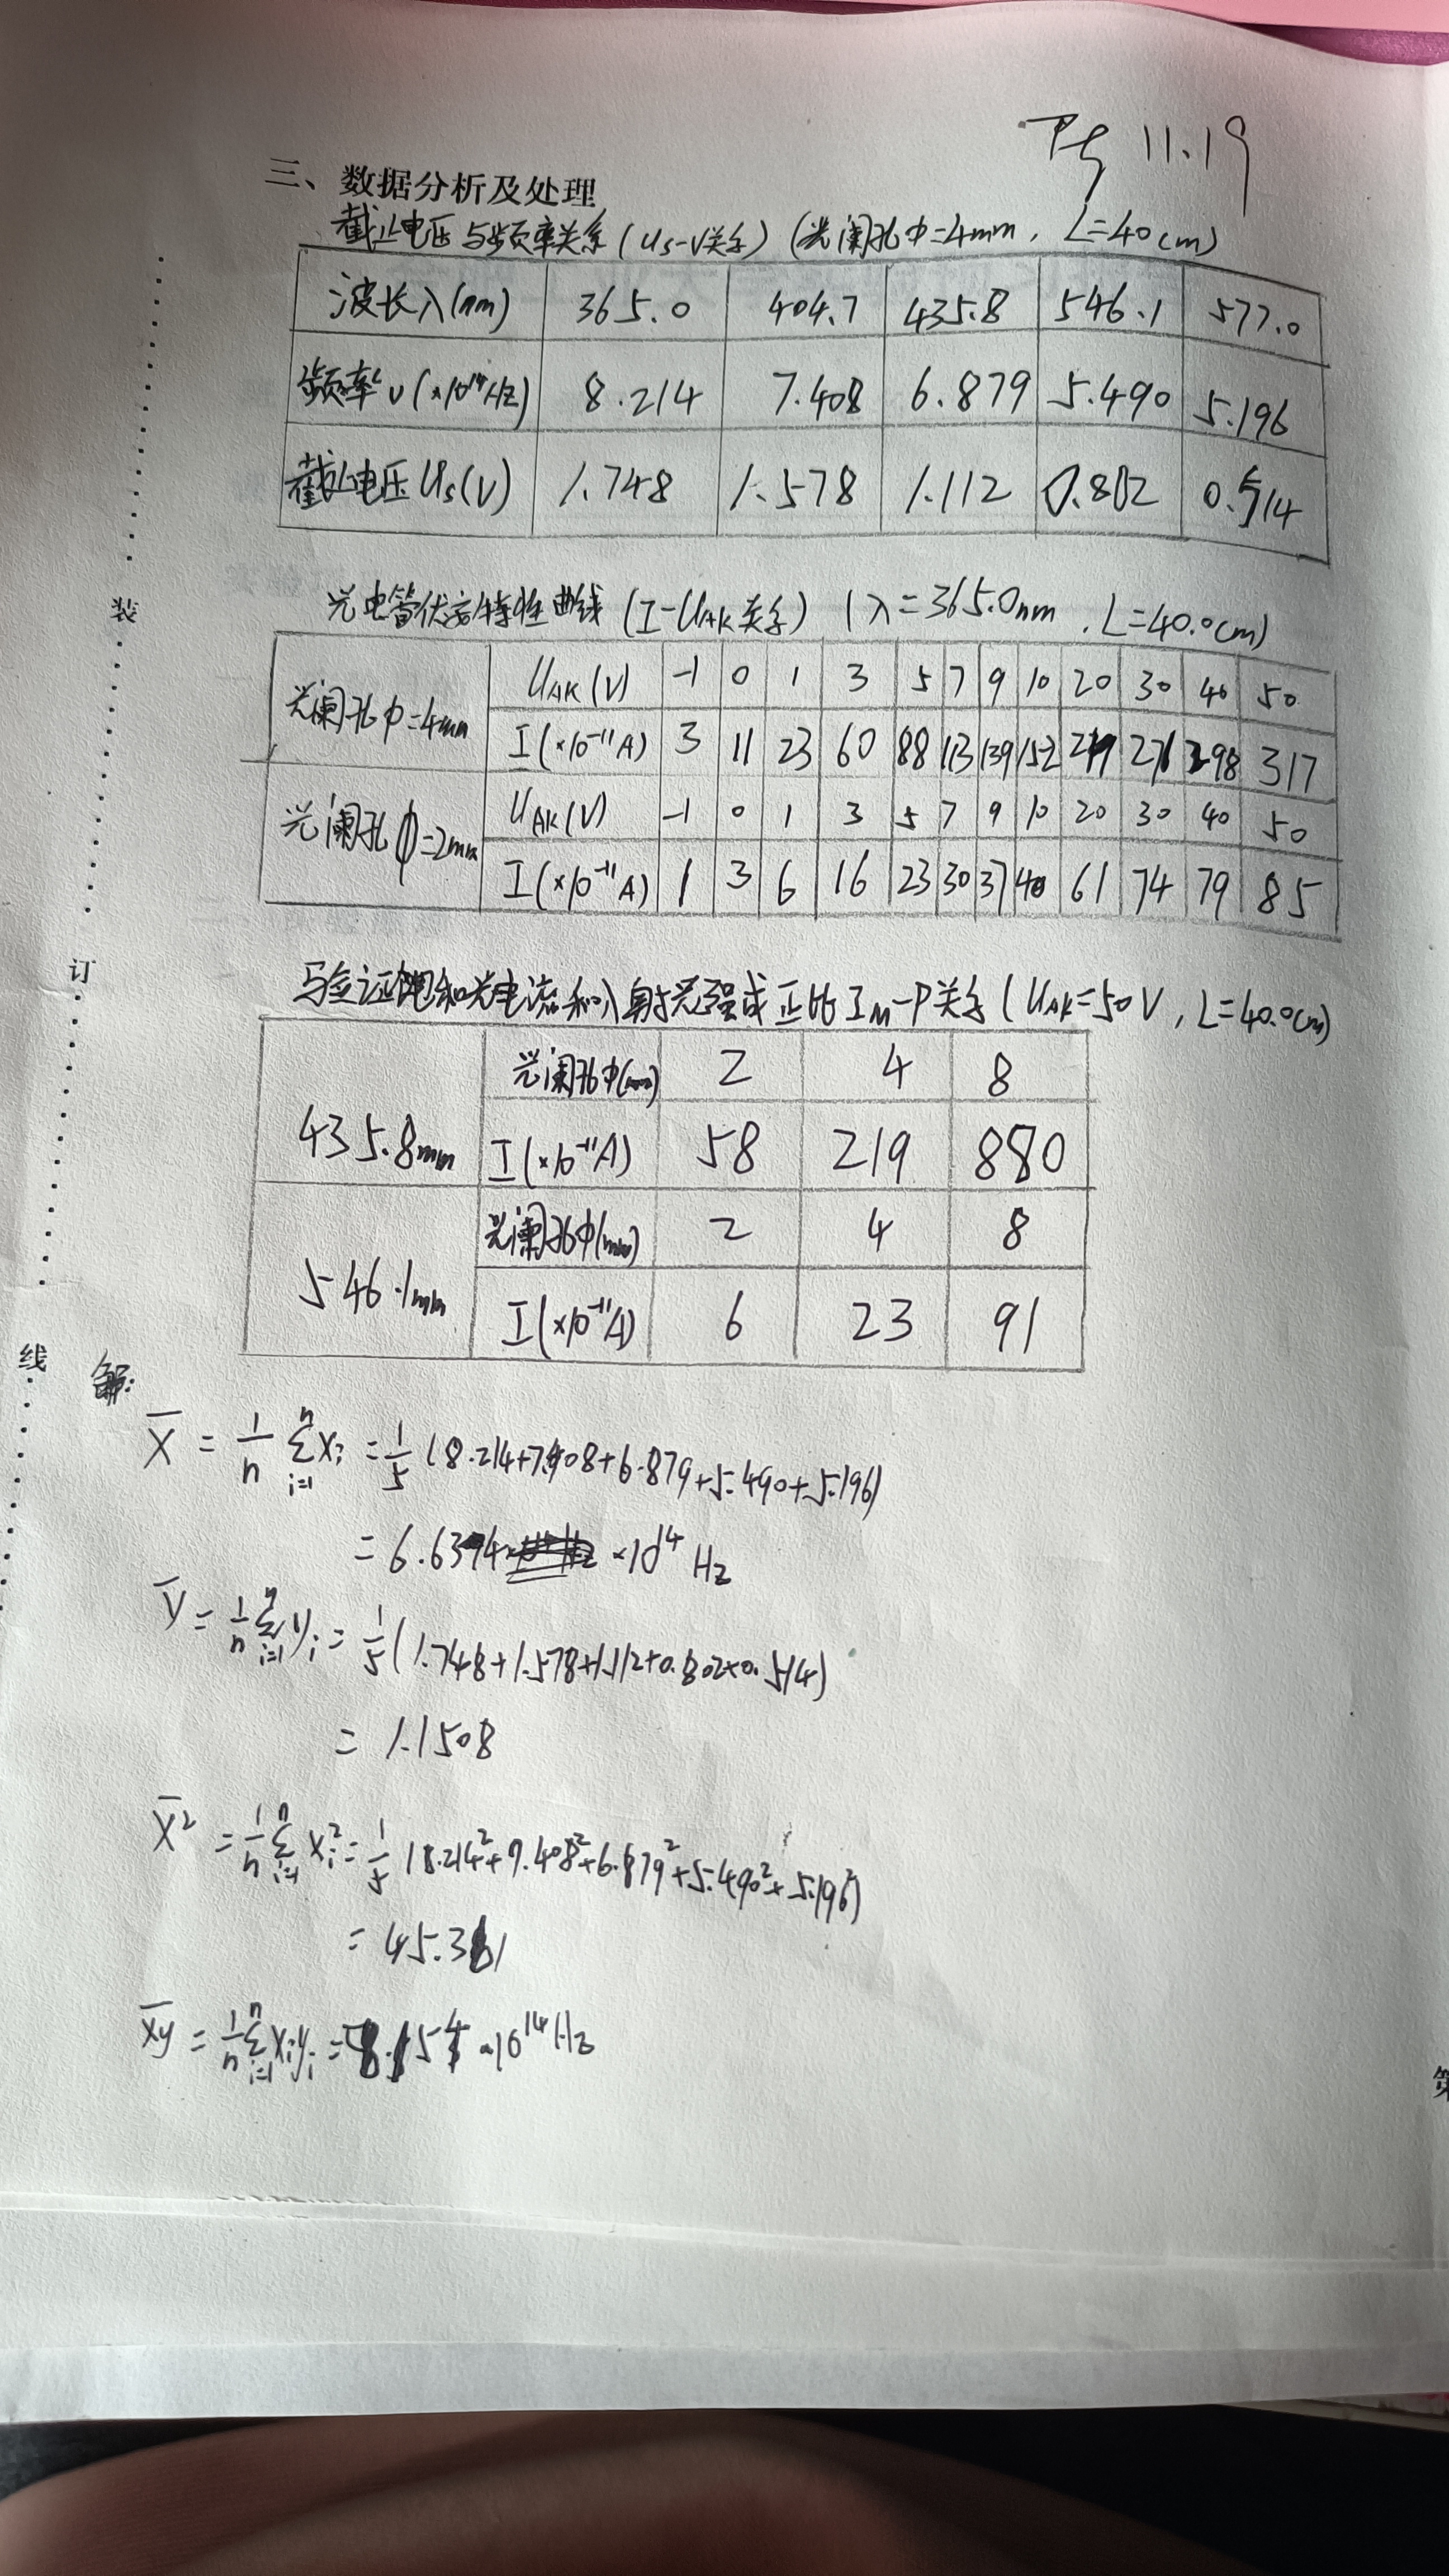 11.19
三、数据分析及处理
截止电压与频率关系(Us-ν关系) (光阑孔Φ=4mm, L=40cm)
波长λ(nm) 365.0 404.7 435.8 546.1 577.0
频率ν(×10¹⁴Hz) 8.214 7.408 6.879 5.490 5.196
截止电压Us(V) 1.748 1.578 1.112 0.802 0.514
光电管伏安特性曲线(I-UAK关系) (λ=365.0nm, L=40.0cm)
光阑孔Φ=4mm UAK(V) -1 0 1 3 5 7 9 10 20 30 40 50
I(×10⁻¹¹A) 3 11 23 60 88 113 139 152 298 317
光阑孔Φ=2mm UAK(V) -1 0 1 3 5 7 9 10 20 30 40 50
I(×10⁻¹¹A) 1 3 6 16 23 30 37 40 61 74 79 85
验证饱和光电流和入射光强成正比 IM-P关系(UAK=50V, L=40.0cm)
435.8mm 光阑孔Φ(mm) 2 4 8
I(×10⁻¹¹A) 58 219 880
546.1mm 光阑孔Φ(mm) 2 4 8
I(×10⁻¹¹A) 6 23 91
解:
X̄ = 1/n Σⁿᵢ₌₁ xᵢ = 1/5 (8.214+7.408+6.879+5.490+5.196)
= 6.6374 ×10¹⁴ Hz
ȳ = 1/n Σⁿᵢ₌₁ yᵢ = 1/5 (1.748+1.578+1.112+0.802+0.514)
= 1.1508
X̄² = 1/n Σⁿᵢ₌₁ xᵢ² = 1/5 (8.214²+7.408²+6.879²+5.490²+5.196²)
= 45.361
x̄ȳ = 1/n Σⁿᵢ₌₁ xᵢyᵢ = ×10¹⁴Hz
装
订
线